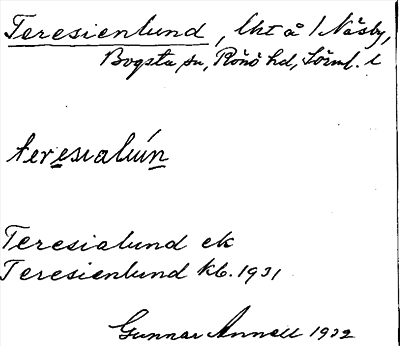 Teresienlund, lht å 1 Näsby,
Bogsta sn, Rönö hd, Sörml. l
teresialuń
Teresialund ek
Teresienlund kb. 1931
Gunnar Annell 1932